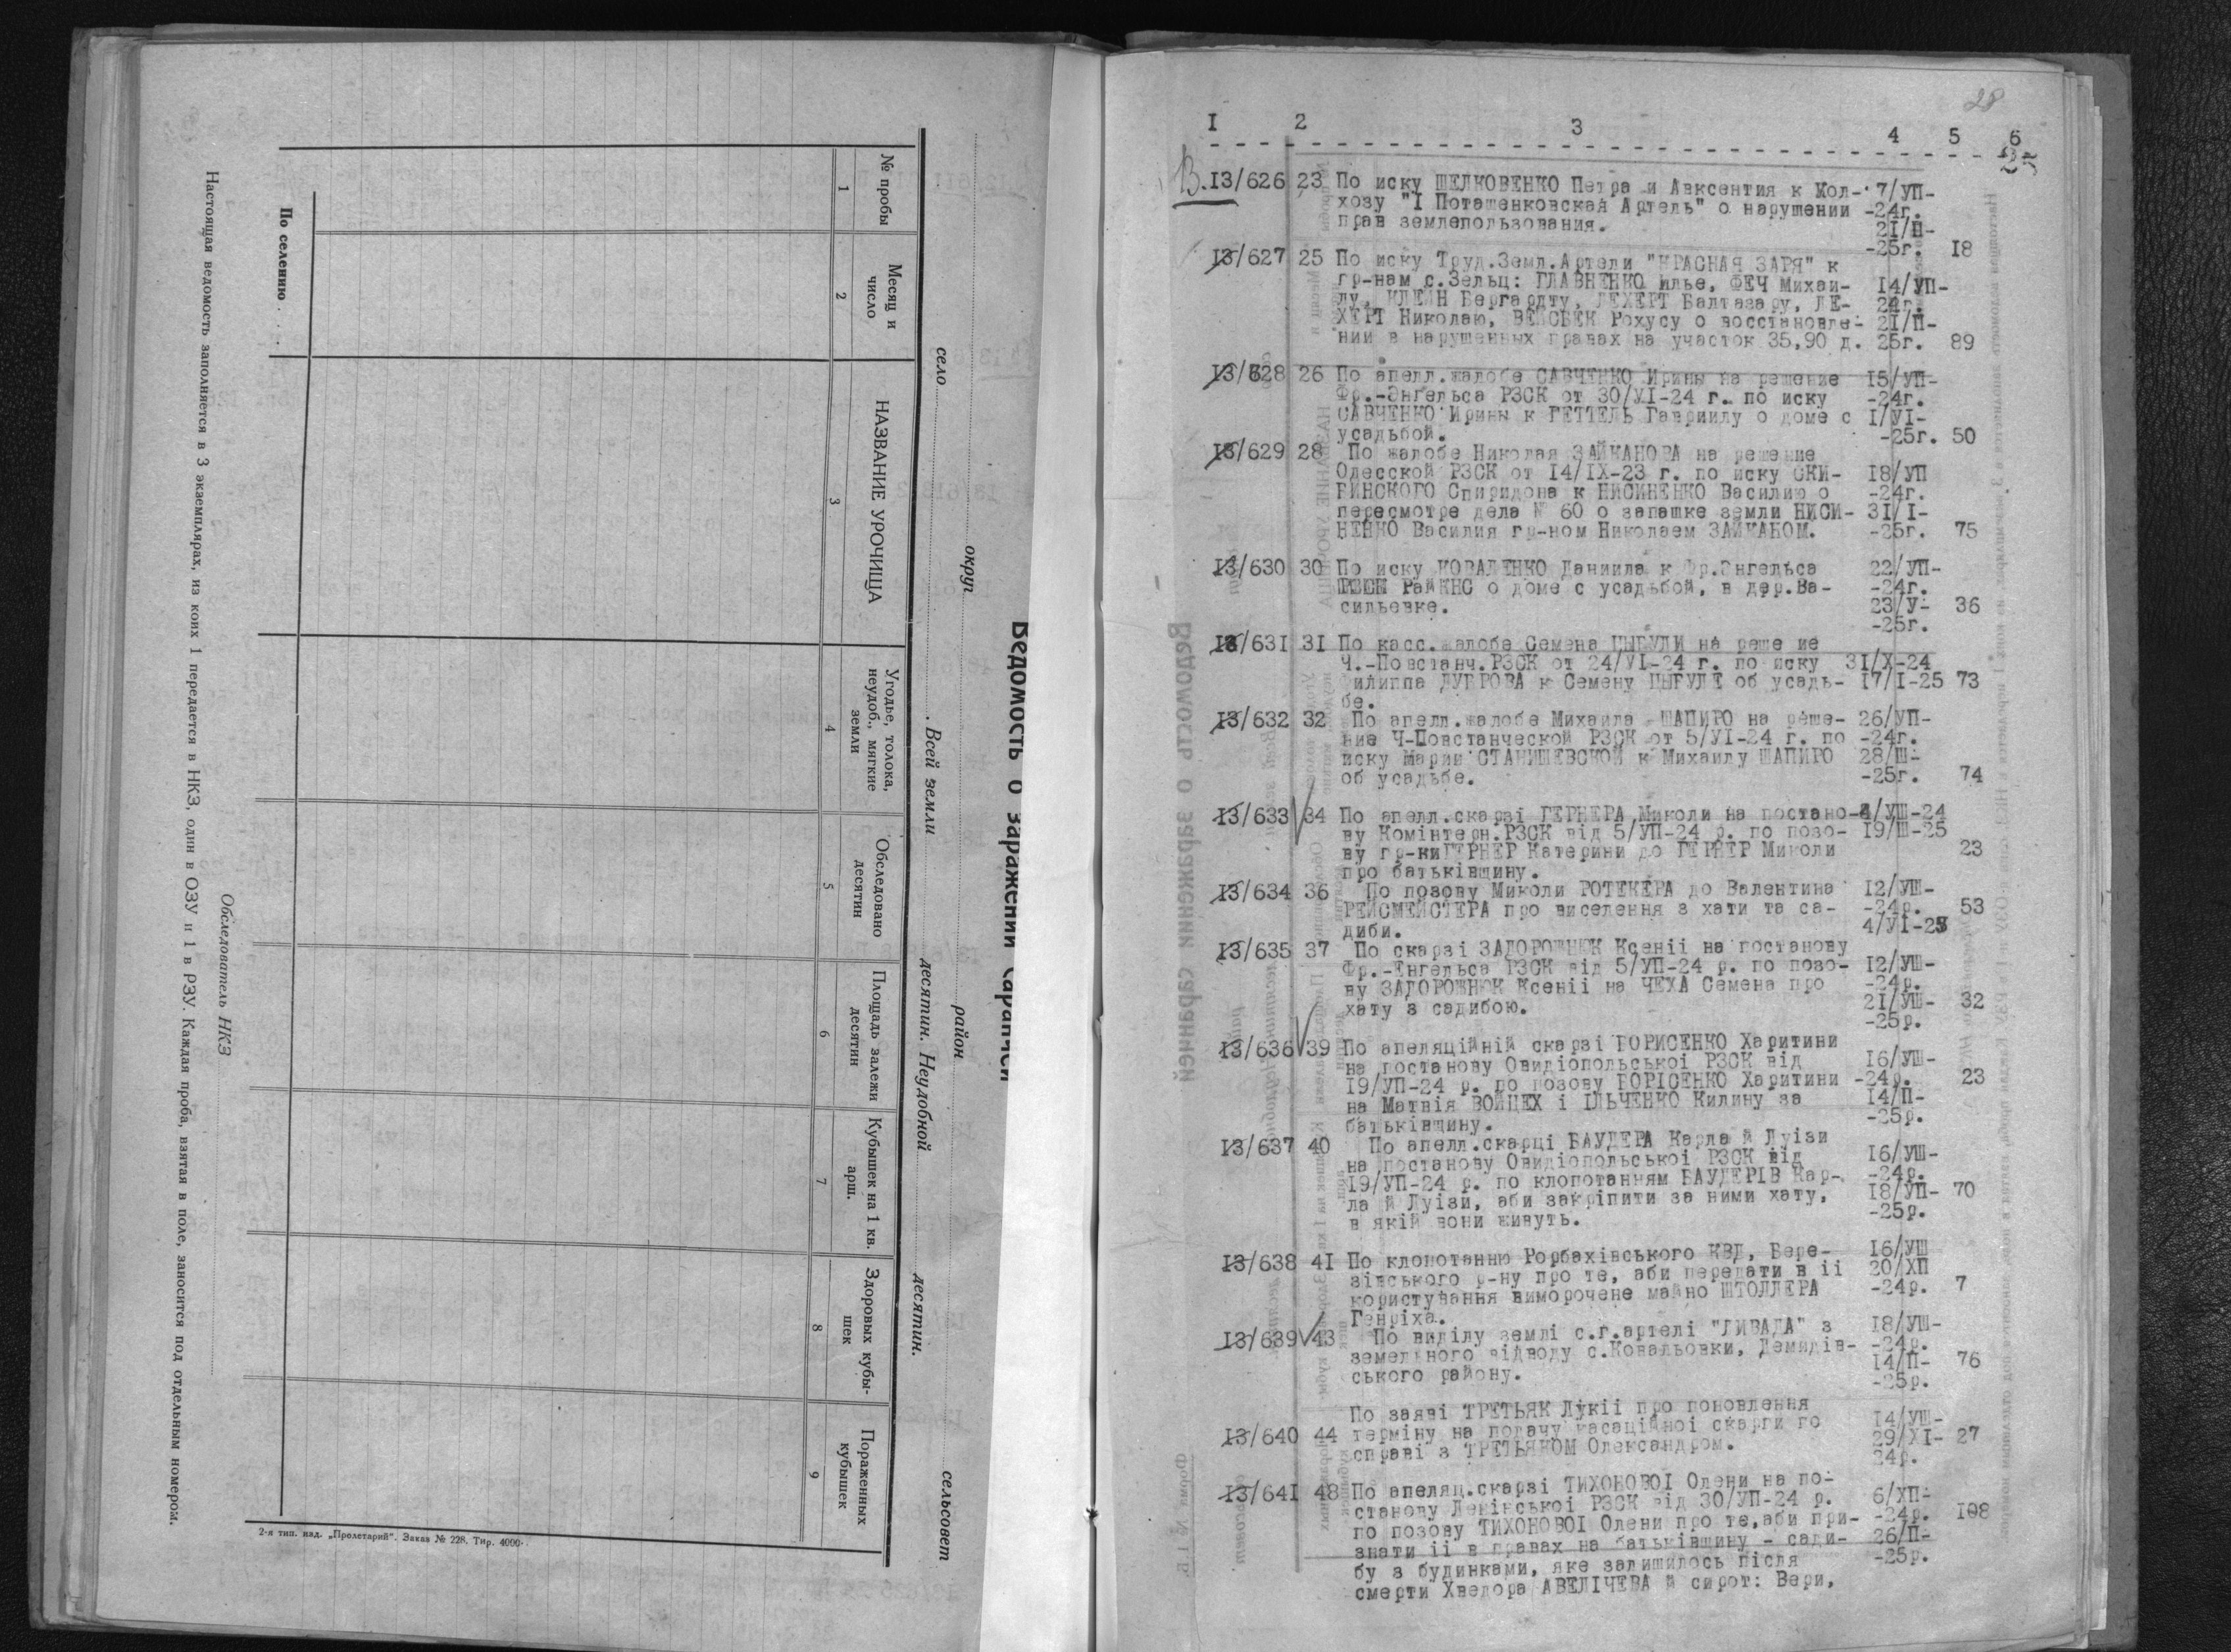 Ведомость о заражении саранчей
округ район
село Всей земли десятин. Неудобной десятин. сельсовет
№ пробы
Месяц и число
НАЗВАНИЕ УРОЧИЩА
Угодье, толока, неудоб., мягкие земли
Обследовано десятин
Площадь залежи десятин
Кубышек на 1 кв. арш.
Здоровых кубышек
Пораженных кубышек
1 2 3 4 5 6 7 8 9
По селению . . .
Обследователь НКЗ
Настоящая ведомость заполняется в 3 экземплярах, из коих 1 передается в НКЗ, один в ОЗУ и 1 в РЗУ. Каждая проба, взятая в поле, заносится под отдельным номером.
2-я тип. изд. „Пролетарий“. Заказ № 228. Тир. 4000.
28
I 2 3 4 5 6
В. I3/626 23 По иску ШЕЛКОВЕНКО Петра и Авксентия к Кол- 7/УП-
хозу "I Поташенковская Артель" о нарушении -24г.
прав землепользования. 2I/П-
-25г. I8
I3/627 25 По иску Труд.Земл.Артели "КРАСНАЯ ЗАРЯ" к
гр-нам с.Зельц: ГЛАВНЕНКО Илье, ФЕЧ Михаи- I4/УП-
лу, КЛЕЙН Бергардту, ЛЕХЕРТ Балтазару, ЛЕ- 24г.
ХЕРТ Николаю, ВЕЙСБЕК Рохусу о восстановле- 2I/П-
нии в нарушенных правах на участок 35,90 д. 25г. 89
I3/628 26 По апелл.жалобе САВЧЕНКО Ирины на решение I5/УП-
Фр.-Энгельса РЗСК от 30/УI-24 г. по иску -24г.
САВЧЕНКО Ирины к ГЕТТЕЛЬ Гавриилу о доме с I/УI-
усадьбой. -25г. 50
I3/629 28 По жалобе Николая ЗАЙКАНОВА на решение
Одесской РЗСК от I4/IX-23 г. по иску СКИ- I8/УП
БИНСКОГО Спиридона к НИСИНЕНКО Василию о -24г.
пересмотре дела № 60 о запашке земли НИСИ- 3I/I-
НЕНКО Василия гр-ном Николаем ЗАЙКАНОМ. -25г. 75
I3/630 30 По иску КОВАЛЕНКО Даниила к Фр.Энгельса 22/УП-
РайКНС о доме с усадьбой, в дер.Ва- -24г.
сильевке. 23/У- 36
-25г.
I3/631 3I По касс.жалобе Семена ЦЫБУЛИ на реше ие
Ч.-Повстанч.РЗСК от 24/УI-24 г. по иску 3I/X-24
Филиппа ДУБРОВА к Семену ЦЫБУЛЕ об усадь- I7/I-25 73
бе.
I3/632 32 По апелл.жалобе Михаила ШАПИРО на реше- 26/УП-
ние Ч-Повстанческой РЗСК от 5/УI-24 г. по -24г.
иску Марии СТАНИШЕВСКОЙ к Михаилу ШАПИРО 28/Ш-
об усадьбе. -25г. 74
I3/633 34 По апелл.скарзі ГЕРНЕРА Миколи на постано- 4/УШ-24
ву Комінтерн.РЗСК від 5/УП-24 р. по позо- I9/Ш-25
ву гр-ки ГЕРНЕР Катерини до ГЕРНЕР Миколи 23
про батьківщину.
I3/634 36 По позову Миколи РОТЕКЕРА до Валентина I2/УШ-
РЕЙСМЕЙСТЕРА про виселення з хати та са- -24р. 53
диби. 4/УI-25
I3/635 37 По скарзі ЗАДОРОЖНЮК Ксеніі на постанову
Фр.-Енгельса РЗСК від 5/УП-24 р. по позо- I2/УШ-
ву ЗАДОРОЖНЮК Ксеніі на ЧЕХА Семена про -24р.
хату з садибою. 2I/УШ- 32
-25р.
I3/636 39 По апеляційній скарзі БОРИСЕНКО Харитини
на постанову Овидіопольськоі РЗСК від I6/УШ-
I9/УП-24 р. по позову БОРІСЕНКО Харитини -24р. 23
на Матвія ВОЙЦЕХ і ІЛЬЧЕНКО Килину за I4/П-
батьківщину. -25р.
I3/637 40 По апелл.скарці БАУДЕРА Карла й Луізи
на постанову Овидіопольськоі РЗСК від I6/УШ-
I9/УП-24 р. по клопотанням БАУДЕРІВ Кар- -24р.
ла й Луізи, аби закріпити за ними хату, I8/УП- 70
в якій вони живуть. -25р.
I3/638 4I По клопотанню Рорбахівського КВД, Бере- I6/УШ
зівського р-ну про те, аби передати в іі 20/ХП
користування виморочене майно ШТОЛЛЕРА -24р. 7
Генріха.
I3/639 43 По виділу землі с.г.артелі "ЛИВАДА" з I8/УШ-
земельного відводу с.Ковальовки, Демидів- -24р.
ського району. I4/П- 76
-25р.
По заяві ТРЕТЬЯК Лукіі про поновлення
I3/640 44 терміну на подачу касаційноі скарги по I4/УШ-
справі з ТРЕТЬЯКОМ Олександром. 29/XI- 27
24р.
I3/641 48 По апеляц.скарзі ТИХОНОВОІ Олени на по-
станову Ленінськоі РЗСК від 30/УП-24 р. 6/ХП-
по позову ТИХОНОВОІ Олени про те,аби при- -24р. I08
знати іі в правах на батьківщину - сади- 26/П-
бу з будинками, яке залишилось після -25р.
смерти Хведора АВЕЛІЧЕВА й сирот: Вери,